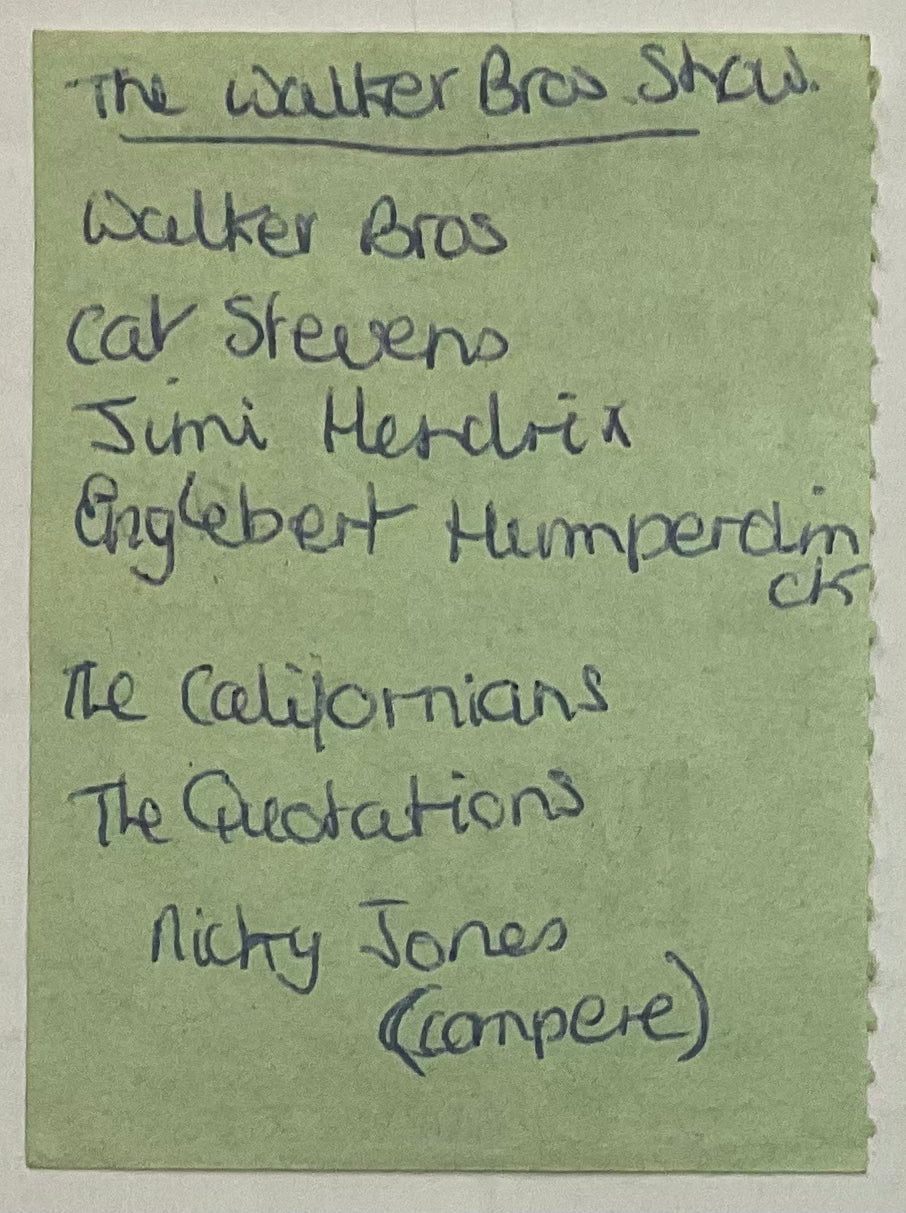 The Walker Bros Show.
Walker Bros
Cat Stevens
Jimi Hendrix
Englebert Humperdin
ck
The Californians
The Quotations
Nicky Jones
(compere)